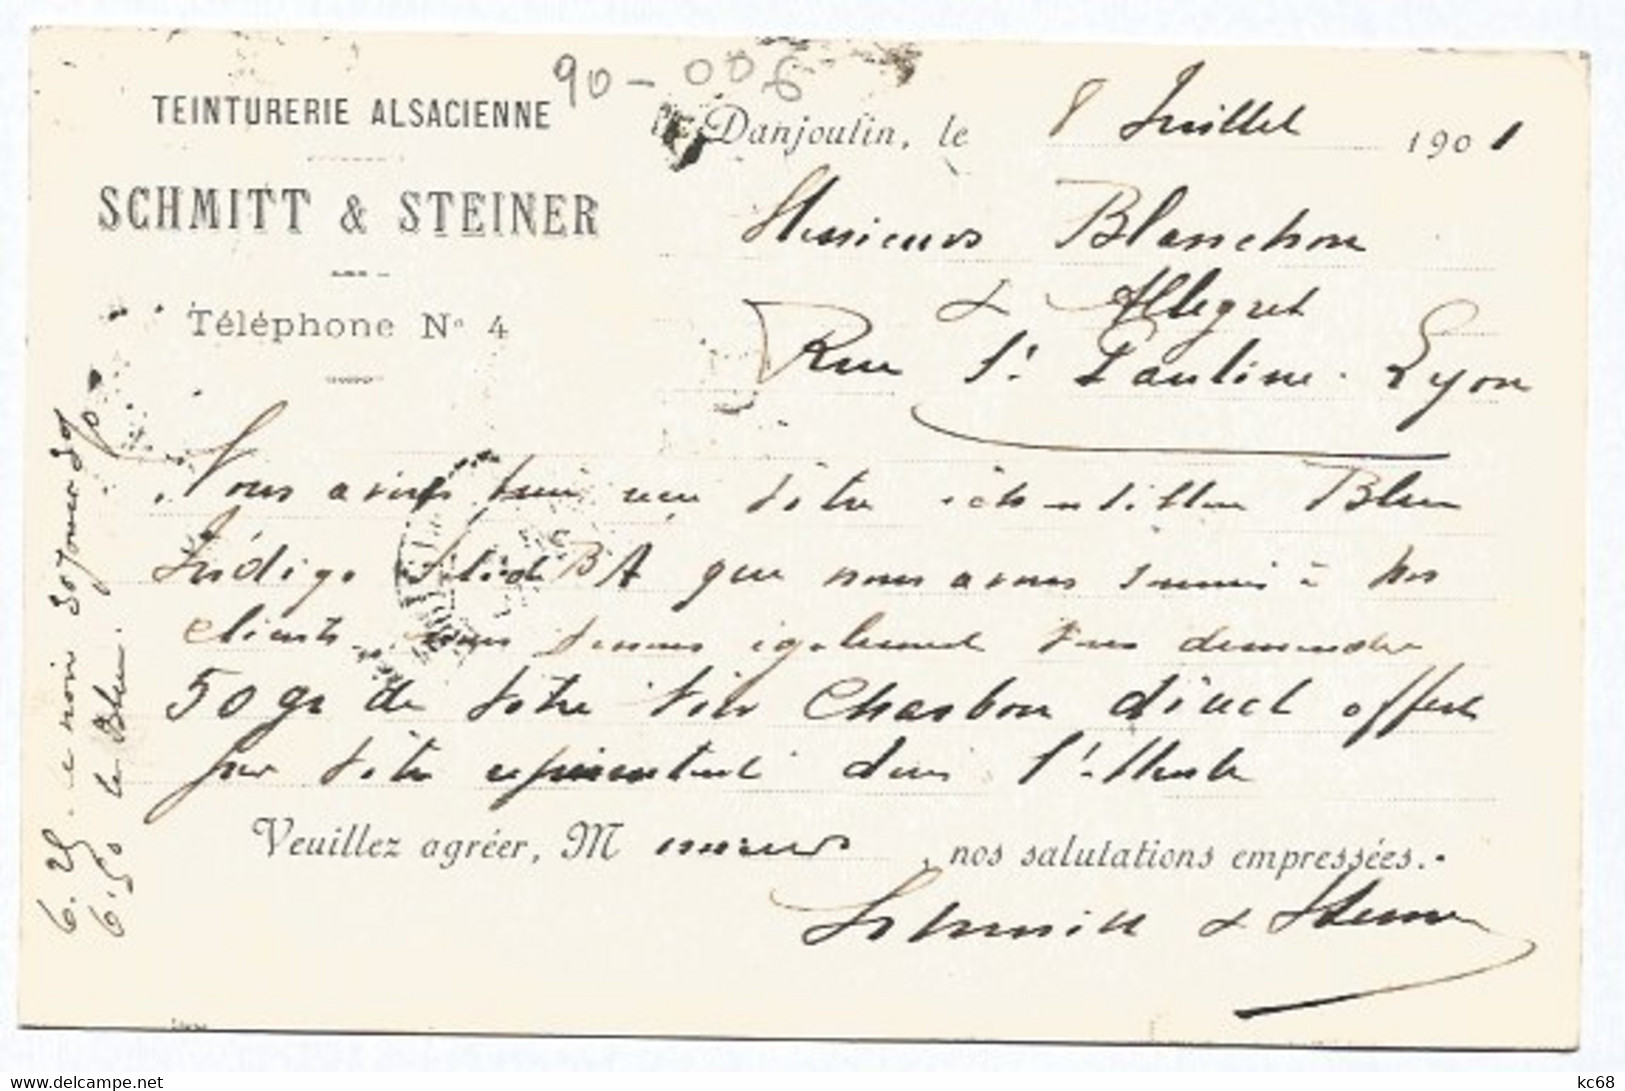 90-006
TEINTURERIE ALSACIENNE
Danjoutin, le 8 Juillet 1901
SCHMITT & STEINER
Messieurs Blanchon
& Allegret
Téléphone No 4
Rue St Pauline. Lyon
Nous avons bien reçu votre échantillon Bleu
Indigo Solide BA que nous avons soumis à nos
clients, nous venons également vous demander
50 gr de votre Noir Charbon direct offert
par votre représentant
Veuillez agréer, Messieurs, nos salutations empressées.
Schmitt & Steiner
6.25 le noir 30 jours
6.50 le Bleu.
delcampe.net
kc68